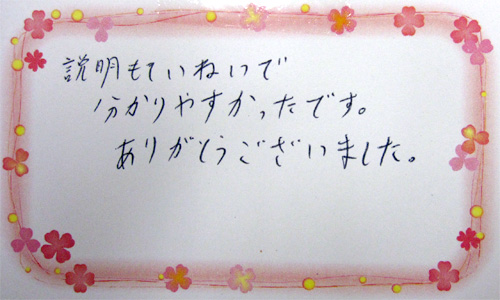 説明もていねいで
分かりやすかったです。
ありがとうございました。